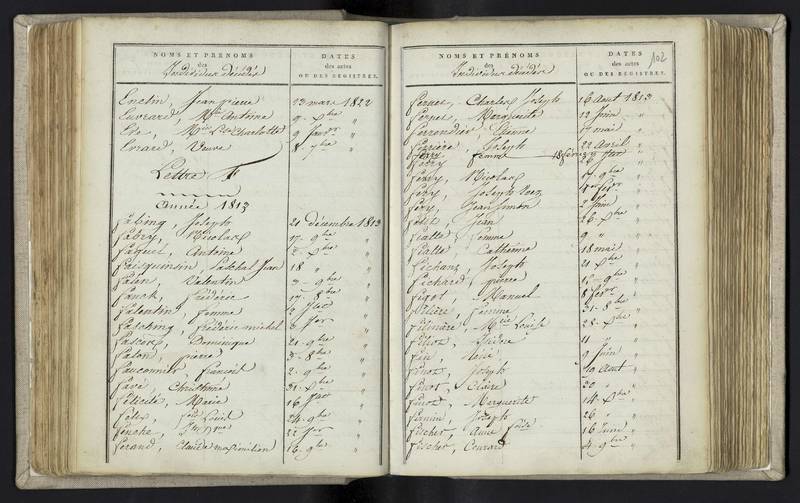 NOMS ET PRÉNOMS
des
Individus décédés
DATES
des actes
OU DES REGISTRES.
Enclin, Jean pierre 23 mars 1822
Euvrard, Antoine 9 xbre "
Eve, Mie Charlotte 9 Janvr "
Evrard, Veuve 8 7bre "
Lettre F
Année 1813
Fabing, Joseph 21 décembre 1813
Fabry, Nicolas 17 9bre "
Faquet, Antoine xbre "
Paschal Jean 18 "
Falan, Valentin 9bre "
Fanck, Fréderic 17 8bre "
Falentin, Femme 2 Jllet "
Fasching, Fréderic michel 6 Jer "
Dominique 21 9bre "
Falon, pierre 3 8bre "
Fauconnier, françois 2 9bre "
Favé, Christinne 31 xbre "
Félicité, Marie 16 Jllet "
Félix, Louis 24 9bre "
22 Jer "
Ferand, Claude maximilien 16 9bre "
NOMS ET PRÉNOMS
des
Individus décédés
DATES
des actes
OU DES REGISTRES.
102
Fernet, Charles Joseph 16 Aout 1813
Fernet, Marguerite 12 Juin "
Ferrondier, Etienne 17 mai "
Ferrière, Joseph 22 Avril "
Ferry, Femme
Ferry, Nicolas 17 9bre "
Ferry, Joseph
Fery, Jean Simon 2 Juin "
Petit, Jean 26 xbre "
Fiatte, Femme 9 "
Fiatte, Catherine 18 mai "
Fichant, Joseph 21 xbre "
Fichard, pierre 9bre "
Figot, Manuel 8 fevr "
Filière, Femme 31 xbre "
Filinaire, Mie Louise 28 xbre "
11 "
Fin, Marie 9 Juin "
Finot, Joseph 19 Aout "
Finot, Claire 20 "
Finot, Marguerite 14 xbre "
Firmin, Joseph 26 "
Fischer, Anne 16 Juin "
Fischer, Conrard 4 9bre "